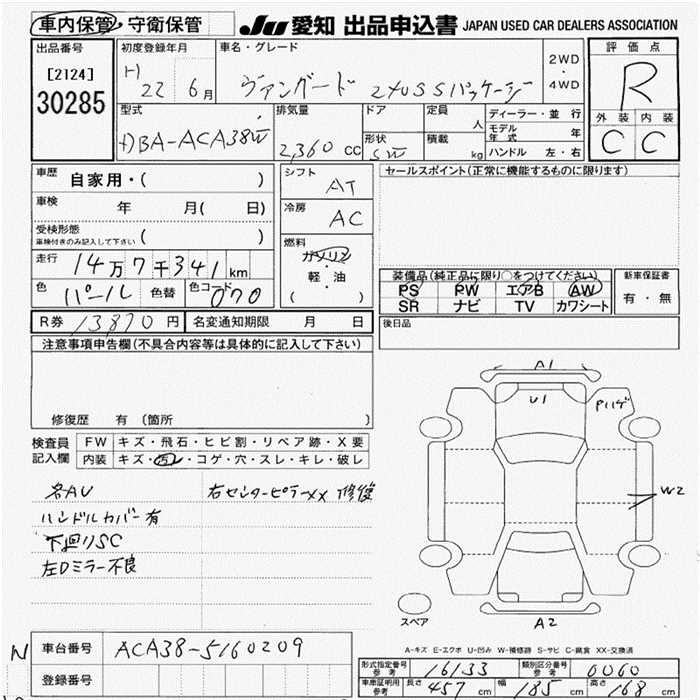 車内保管・守衛保管 JU 愛知 出品申込書 JAPAN USED CAR DEALERS ASSOCIATION
出品番号 初度登録年月 車名・グレード 評価点
[2124] H 2WD
30285 22 6月 ヴァンガード ・ R
4WD
型式 排気量 ドア 定員 ディーラー・並行 外装 内装
DBA-ACA38W 2,360cc 人 モデル年式 年 C C
形状 積載
SW kg ハンドル 左・右
車歴 自家用・( ) シフト AT セールスポイント(正常に機能するものに限ります)
車検 年 月( 日) 冷房 AC
受検形態 ( )
車検付きのみ記入して下さい
燃料
走行 14万7千341km ガソリン
軽・油
( )
装備品(純正品に限り○をつけてください) 新車保証書
色 パール 色替 色コード 070 PS PW エアB AW 有・無
SR ナビ TV カワシート
R券 13870円 名変通知期限 月 日 後日品
注意事項申告欄(不具合内容等は具体的に記入して下さい)
A1
U1 Pハゲ
修復歴 有 (箇所 )
検査員 FW キズ・飛石・ヒビ割・リペア跡・X要
記入欄 内装 キズ・汚レ・コゲ・穴・スレ・キレ・破レ
名AU 右センターピラーXX 修復
W2
ハンドルカバー有
下廻りSC
左Dミラー不良
スペア A2
A-キズ E-エクボ U-凹み W-補修跡 S-サビ C-腐食 XX-交換済
N 車台番号 ACA38-5160209
登録番号
形式指定番号 参考 16133 類別区分番号 参考 0060
車庫証明用 参考 長さ 457cm 幅 185cm 高さ 168cm